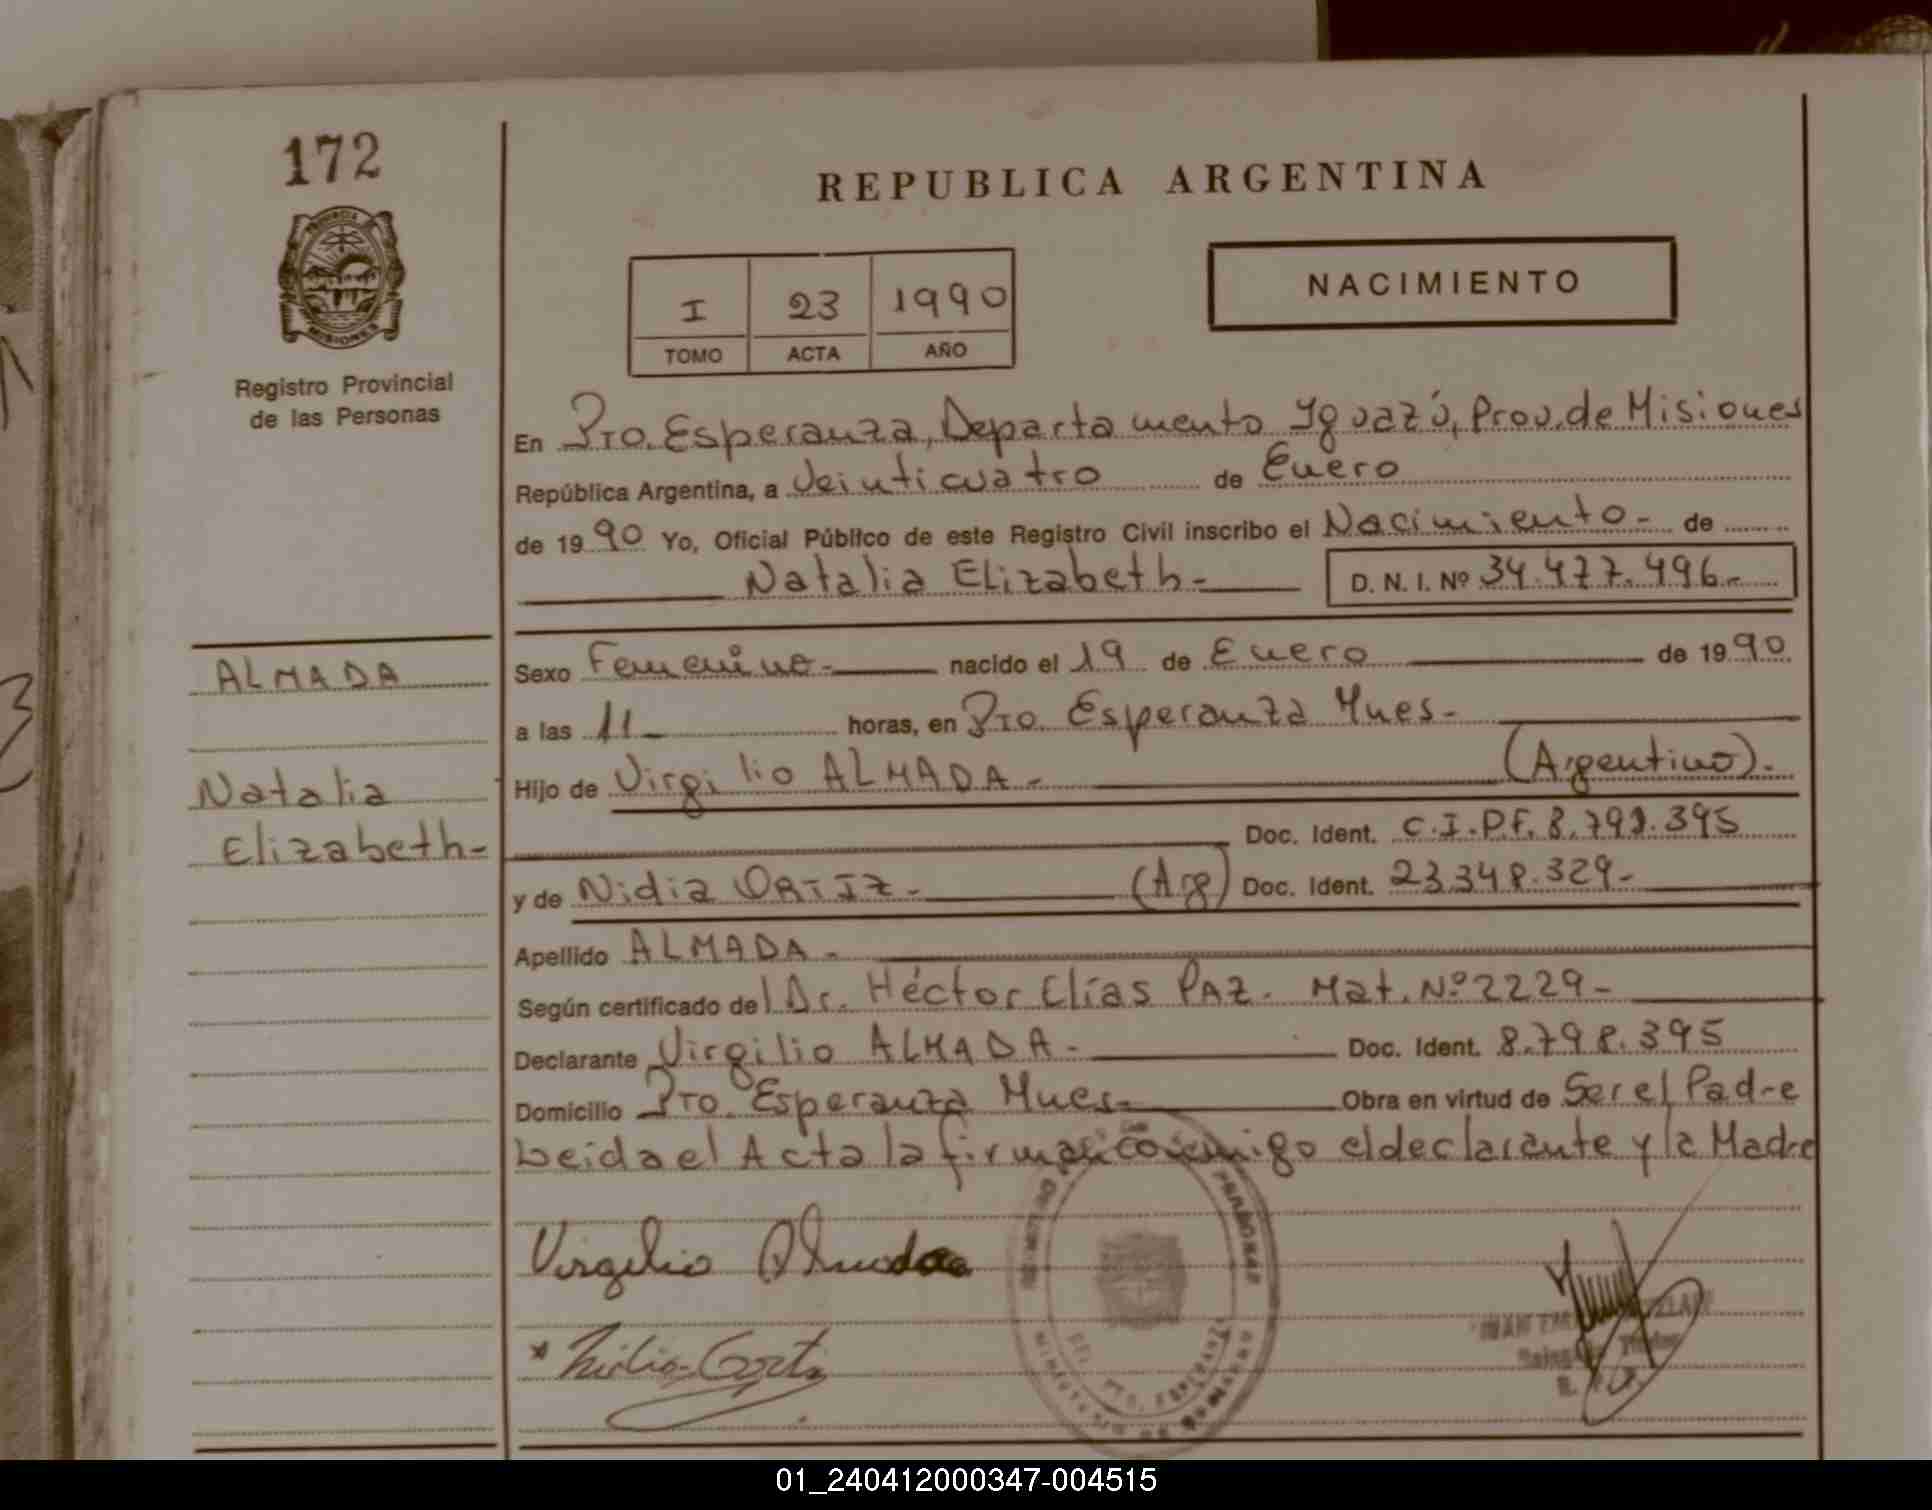 172
PROVINCIA
MISIONES
Registro Provincial
de las Personas
REPUBLICA ARGENTINA
I 23 1990
TOMO ACTA AÑO
NACIMIENTO
En Pto. Esperanza, Departamento Iguazú, Prov. de Misiones
República Argentina, a Veinticuatro de Enero
de 1990 Yo, Oficial Público de este Registro Civil inscribo el Nacimiento- de
Natalia Elizabeth- D. N. I. Nº 34.477.496-
ALMADA
Natalia
Elizabeth-
Sexo Femenino- nacido el 19 de Enero de 1990
a las 11 horas, en Pto. Esperanza Mnes-
Hijo de Virgilio ALMADA- (Argentino).
Doc. Ident. C.I.P.F. 8.798.395
y de Nidia ORTIZ- (Arg) Doc. Ident. 23.348.329-
Apellido ALMADA-
Según certificado del Dr. Héctor Elías PAZ. Mat. Nº 2229-
Declarante Virgilio ALMADA- Doc. Ident. 8.798.395
Domicilio Pto. Esperanza Mnes- Obra en virtud de Ser el Padre
Leida el Acta la firman conmigo el declarante y la Madre
Virgilio Almada
PTO. ESPERANZA
01_240412000347-004515